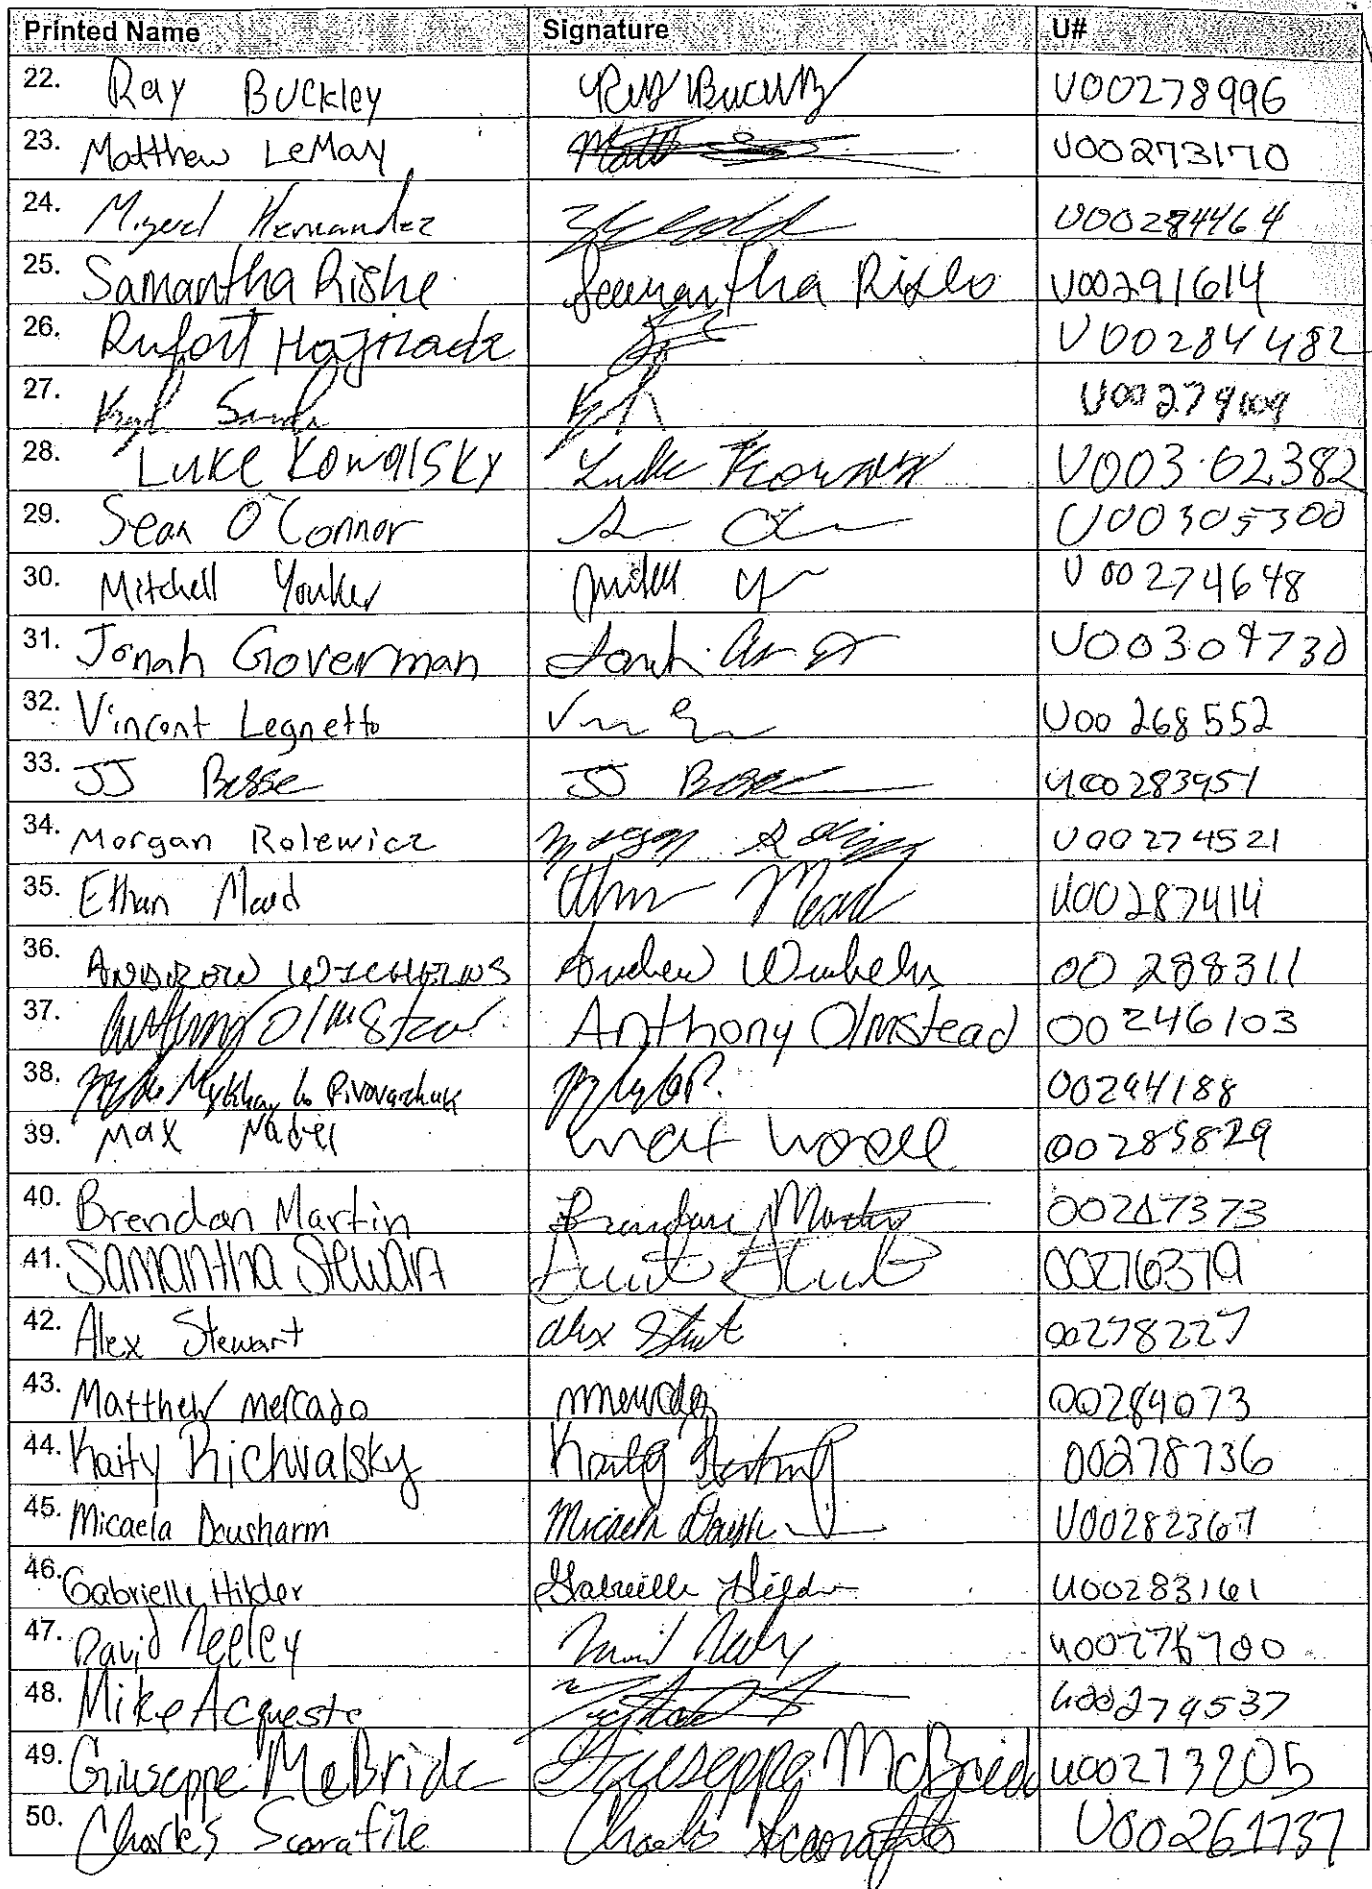 Printed Name Signature U#
22. Ray Buckley Ray Buckley U00278996
23. Matthew LeMay Matt U00273170
24. Miguel Hernandez U00284464
25. Samantha Rishe Samantha Rishe U00291614
26. U00284482
27. Kyle
28. Luke Kowalsky Luke U00302382
29. Sean O'Connor U00305300
30. Mitchell Youker U00274648
31. Jonah Goverman Jonah
32. Vincent Legnetto U00268552
33. JJ Besse JJ Besse U00283951
34. Morgan Rolewicz Morgan U00274521
35. Ethan Mead Ethan Mead U00287414
36. Andrew Andrew 00288311
37. Anthony Olmstead Anthony Olmstead 00246103
38. Mykhaylo Pivovarchuk 00294188
39. Max Nadel 00285829
40. Brendan Martin Brendan Martin
41. Samantha Stewart 00276379
42. Alex Stewart Alex Stewart 00278227
43. Matthew Mercado mmercado 00284073
44. Kaity Richvalsky Kaity 00278736
45. Micaela Dousharm Micaela U00282367
46. Gabrielle Hilder Gabrielle Hilder U00283161
47. David Neeley David Neeley U00276700
48. Mike Acqueste U00279537
49. Giuseppe McBride Giuseppe McBride U00273205
50. Charles Scarafile Charles Scarafile U00261737